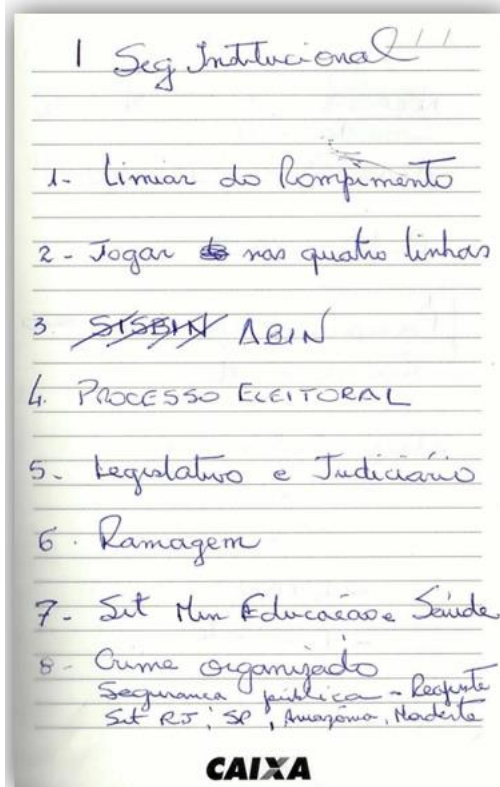 1 Seg Institucional / /
1- Limiar do Rompimento
2 - Jogar nas quatro linhas
3. SISBIN ABIN
4. PROCESSO ELEITORAL
5- Legislativo e Judiciário
6. Ramagem
7- Sit Min Educação e Saúde
8- Crime organizado
Segurança pública -
Sit RJ, SP, Amazônia, Nordeste
CAIXA